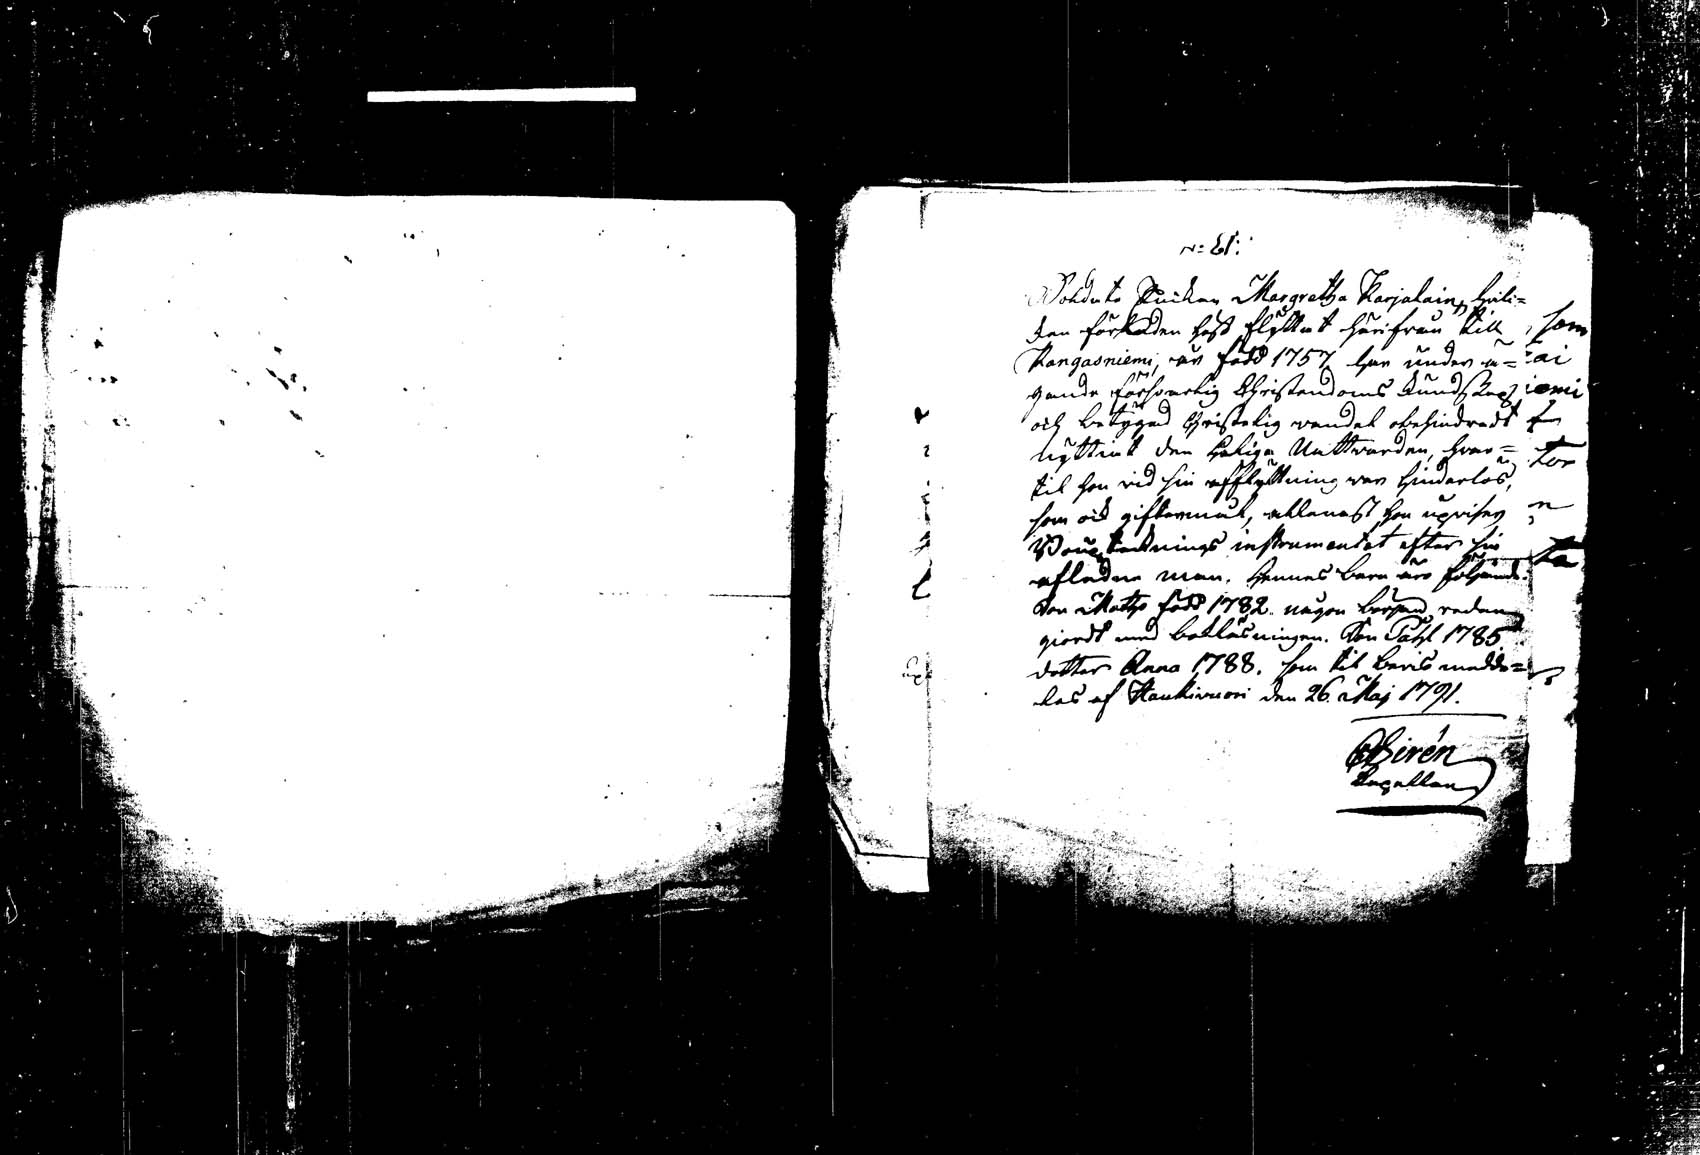 N:o 61:
Soldate Enckan Margretha Karjalain, hvil=
ken förleden höst flyttat härifrån till
Kangasniemi, är född 1757, har under ä=
gande försvarlig Christendoms Kundskap
och betygad Christelig vandel obehindradt
nyttiat den Heliga Nattvarden, hvar=
til hon vid sin afflyttning var hinderlös,
som ock giftermål, allenast hon upviser
Boupteknings instrumentet efter sin
afledne man. Hennes barn äro följande.
Son Mathz född 1782. någon början redan
giordt med bokläsningen. Son Påhl 1785
dotter Anna 1788. som til bevis medde=
las af Haukivuori den 26. Maj 1791.
Sirén
Capellan